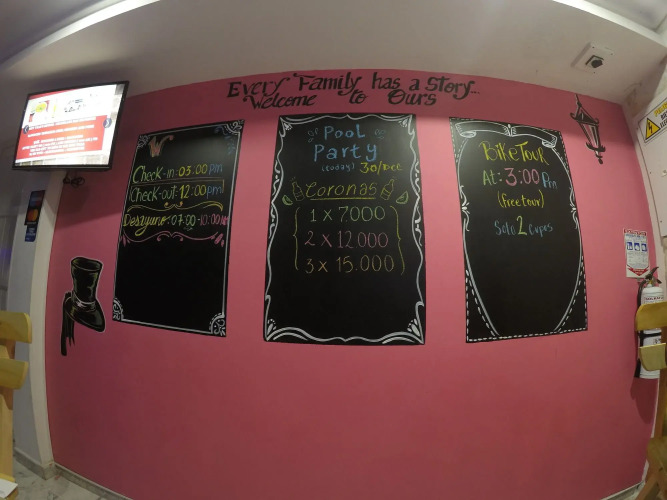 Every Family has a story...
Welcome to Ours
Check-in: 03:00 pm
Check-out: 12:00 pm
Desayuno: 07:00 - 10:00 AM
Pool
Party
(today) 30/Dec
Coronas
1 x 7.000
2 x 12.000
3 x 15.000
Bike Tour
At: 3:00 Pm
(free tour)
Solo 2 Cupos